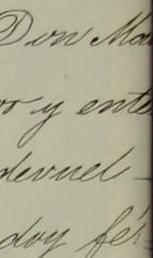 Don Ma
ro y ente
devuel-
doy fé!-